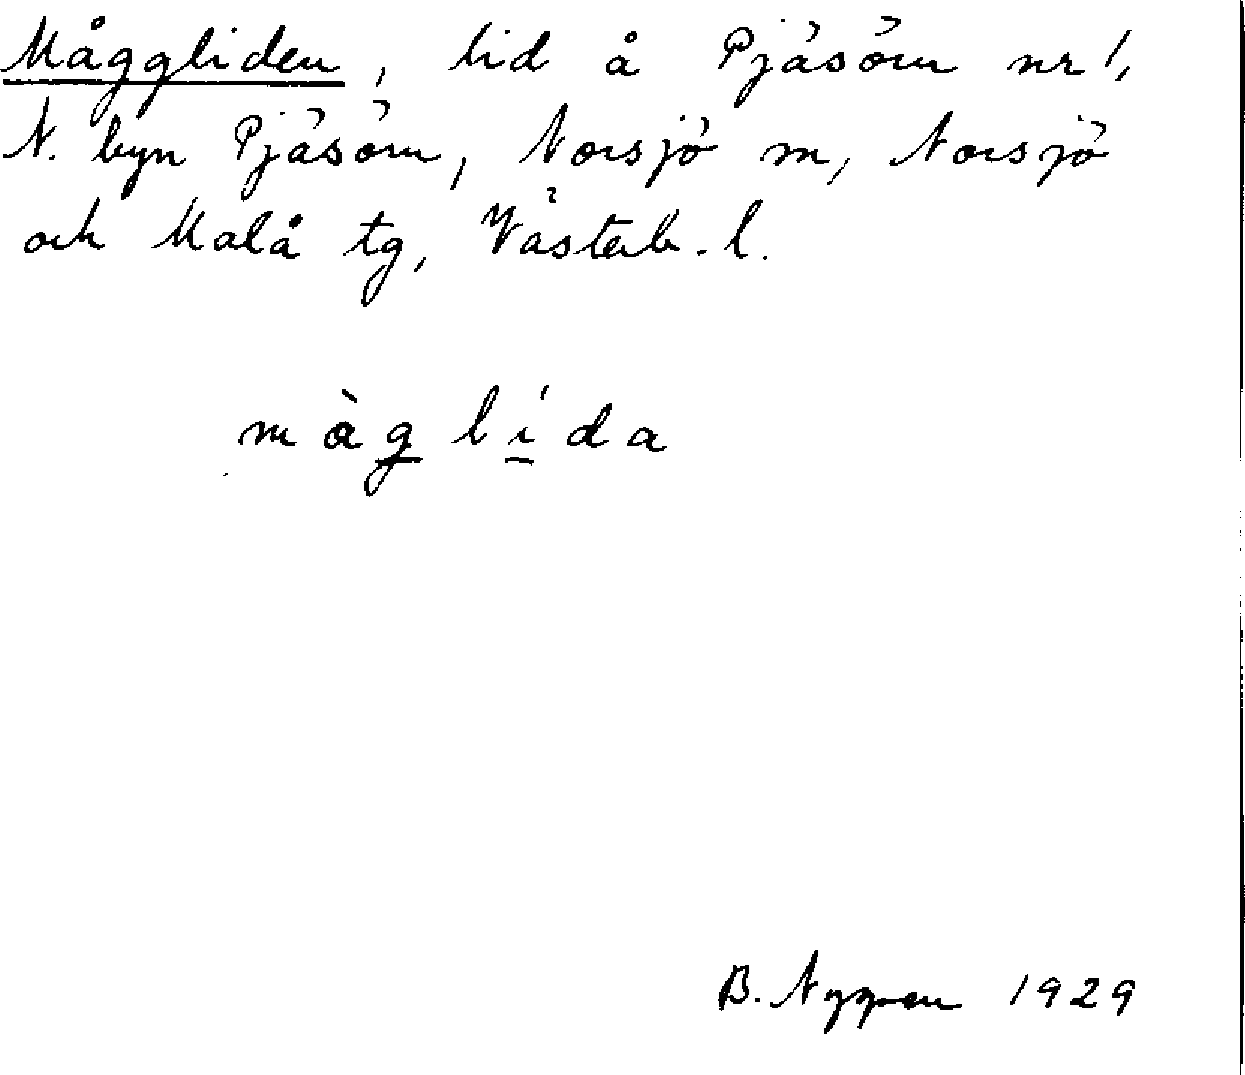 Måggliden, lid å Pjäsörn nr 1,
N. byn Pjäsörn, Norsjö sn, Norsjö
och Malå tg, Västerb. l.
màg lída
B. Nyman 1929